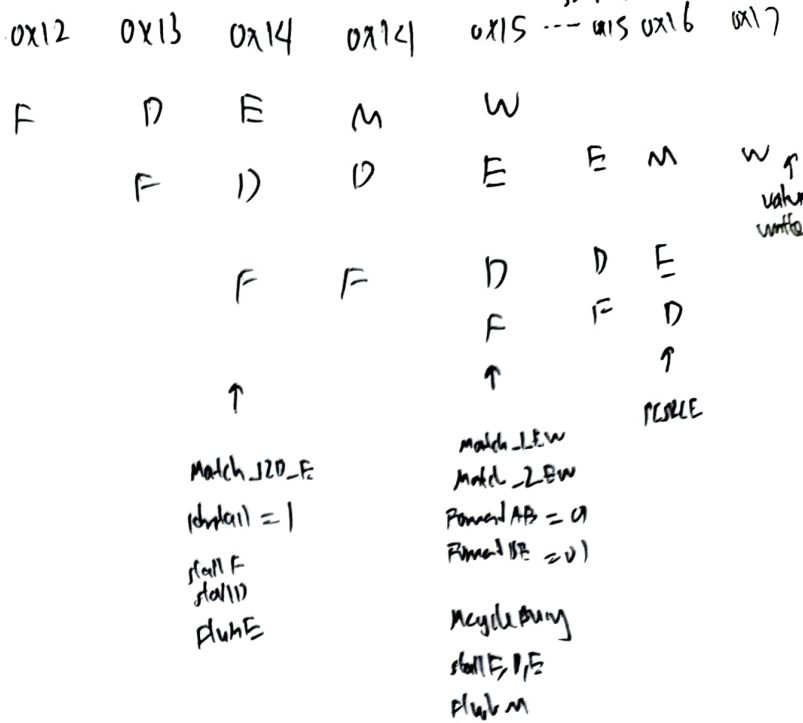 0x12 0x13 0x14 0x14 0x15 --- 0x15 0x16 0x17
F D E M W
F D D E E M W
↑
F F D D E
F F D
↑ ↑ ↑
PCSRCE
Match_12D_E
ldrstall = 1
stall F
stall D
FlushE
Match_1EW
Match_2EW
= 01
McycleBusy
stall F, D, E
Flush M